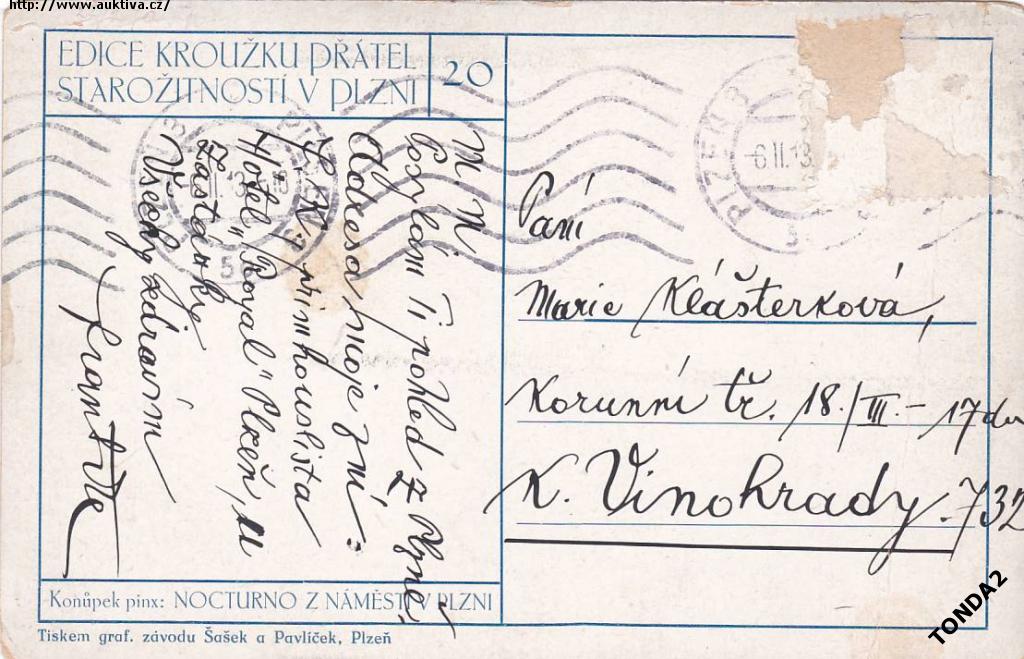 http://www.auktiva.cz/
EDICE KROUŽKU PŘÁTEL
STAROŽITNOSTÍ V PLZNI
20
N. N.
Posýlám Ti pohled z Plzně.
Adresa moje zní:
prim houslista
Hotel „Royal" Plzeň, u
Zastávky
Všecky zdravím
František
PLZEŇ
6.II.13
Paní
Marie Klášterková,
Korunní tř. 18./III. - 17 dv
K. Vinohrady. 732
Konůpek pinx: NOCTURNO Z NÁMĚSTÍ V PLZNI
Tiskem graf. závodu Šašek a Pavlíček, Plzeň
TONDA2